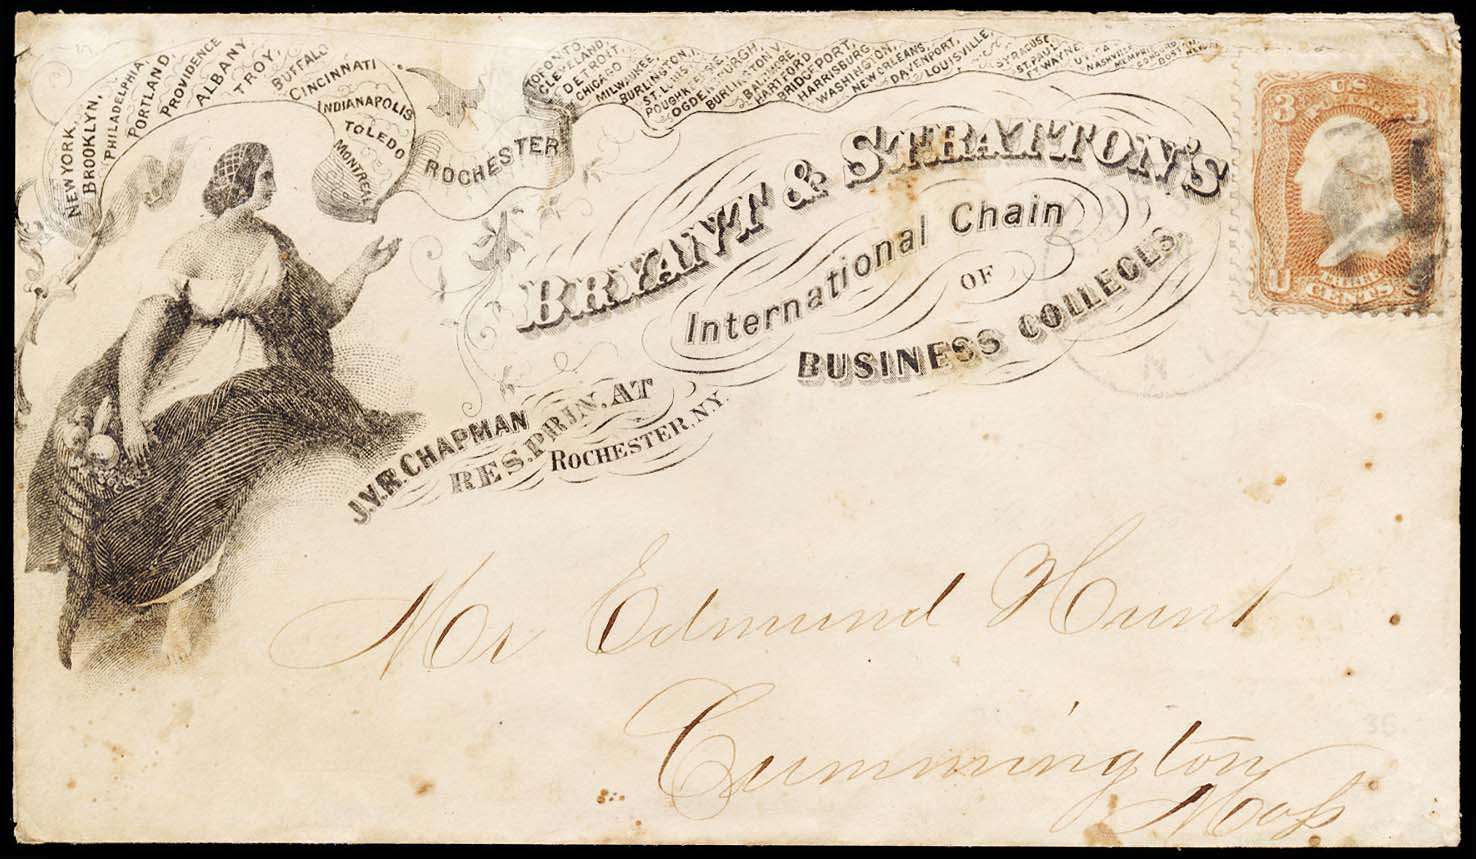 NEW YORK,
BROOKLYN,
PHILADELPHIA
PORTLAND
PROVIDENCE
ALBANY
TROY,
BUFFALO
CINCINNATI
INDIANAPOLIS
TOLEDO
MONTREAL
ROCHESTER
TORONTO
CLEVELAND,
DETROIT,
CHICAGO
MILWAUKEE,
BURLINGTON, I.
ST. LOUIS,
POUGHKEEPSIE,
OGDENSBURGH,
BURLINGTON, V.
BALTIMORE,
HARTFORD
BRIDGEPORT,
HARRISBURG
WASHINGTON,
NEW ORLEANS,
DAVENPORT,
LOUISVILLE,
SYRACUSE,
ST. PAUL,
FT. WAYNE,
UTICA
NASHVILLE
MEMPHIS
CONCORD,
BOSTON
BRYANT & STRATTON'S
International Chain
OF
BUSINESS COLLEGES.
J.V.R. CHAPMAN
RES. PRIN. AT
ROCHESTER, N.Y.
3 U.S. 3
POSTAGE
U
THREE
CENTS
Mr Edmund Hunt
Cummington
Mass
35